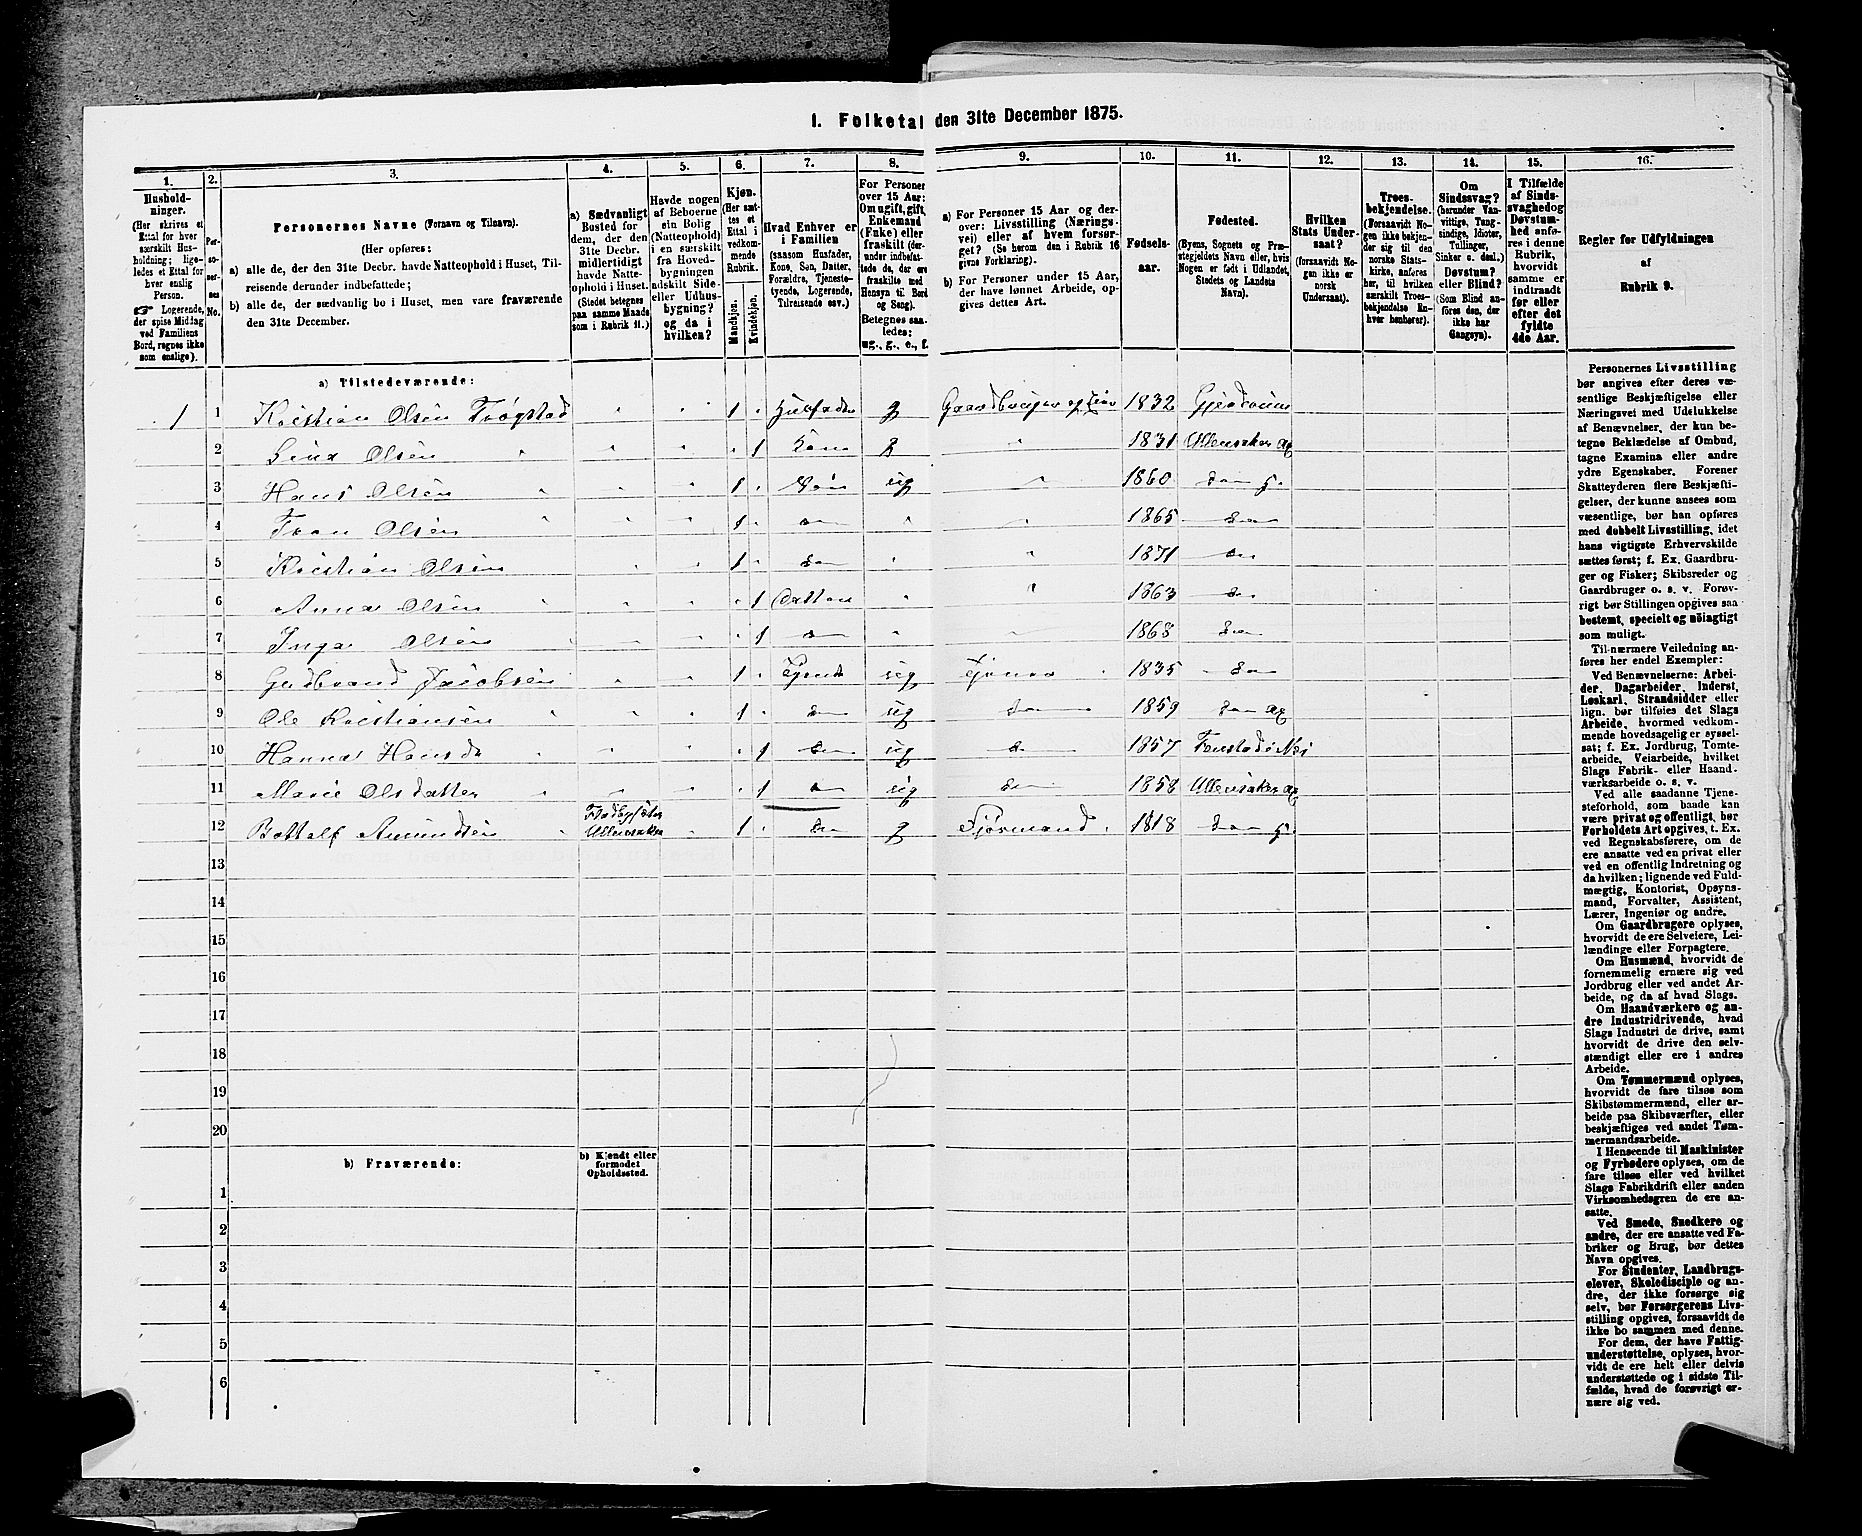 I. Folketal den 31te December 1875.
1. 2. 3. 4. 5. 6. 7. 8. 9. 10. 11. 12. 13. 14. 15. 16.
Hushold-
ninger.
(Her skrives et
Ettal for hver
særskilt Hus-
holdning; lige-
ledes et Ettal for
hver enslig
Person.
☞ Logerende,
der spise Middag
ved Familiens
Bord, regnes ikke
som enslige).
Per-
so-
ner-
nes
No.
Personernes Navne (Fornavn og Tilnavn).
(Her opføres:
a) alle de, der den 31te Decbr. havde Natteophold i Huset, Til-
reisende derunder indbefattede;
b) alle de, der sædvanlig bo i Huset, men vare fraværende
den 31te December.
a) Sædvanligt
Bosted for
dem, der den
31te Decbr.
midlertidigt
havde Natte-
ophold i Huset.
(Stedet betegnes
paa samme Maade
som i Rubrik 11.)
Havde nogen
af Beboerne
sin Bolig
(Natteophold)
i en særskilt
fra Hoved-
bygningen
adskilt Side-
eller Udhus-
bygning?
og da i
hvilken?
Kjøn.
(Her sæt-
tes et
Ettal i
vedkom-
mende
Rubrik.
Mandkjøn.
Kvindekjøn.
Hvad Enhver er
i Familien
(saasom Husfader,
Kone, Søn, Datter,
Forældre, Tjeneste-
tyende, Logerende,
Tilreisende osv.)
For Personer
over 15 Aar:
Om ugift, gift,
Enkemand
(Enke) eller
fraskilt (der-
under indbefat-
tede de, der ere
fraskilte med
Hensyn til Bord
og Seng).
Betegnes saa-
ledes:
ug., g., e., f.
a) For Personer 15 Aar og der-
over: Livsstilling (Nærings-
vei) eller af hvem forsør-
get? (Se herom den i Rubrik 16
givne Forklaring).
b) For Personer under 15 Aar,
der have lønnet Arbeide, op-
gives dettes Art.
Fødsels-
aar.
Fødested.
(Byens, Sognets og Præ-
stegjeldets Navn eller, hvis
Nogen er født i Udlandet,
Stedets og Landets
Navn).
Hvilken
Stats Under-
saat?
(forsaavidt No-
gen ikke er
norsk
Undersaat).
Troes-
bekjendelse.
(Forsaavidt No-
gen ikke bekjen-
der sig til den
norske Stats-
kirke, anføres
her, til hvilken
særskilt Troes-
bekjendelse En-
hver henhører).
Om
Sindssvag?
(herunder Van-
vittige, Tung-
sindige, Idioter,
Tullinger,
Sinker o. desl.)
Døvstum?
eller Blind?
(Som Blind an-
føres den, der
ikke har
Gangsyn).
I Tilfælde
af Sinds-
svaghed og
Døvstum-
hed anfø-
res i denne
Rubrik,
hvorvidt
samme er
indtraadt
før eller
efter det
fyldte
4de Aar.
Regler for Udfyldningen
af
Rubrik 9.
a) Tilstedeværende:
1 1 Kristian Olsen Trøgstad 1 Husfader g 1832 Gjerdrum
2 Lina Olsen 1 Kone g 1831 Ullensaker
3 Hans Olsen 1 Søn ug 1860
4 Olsen 1 1865
5 Kristian Olsen 1 1871
6 Anna Olsen 1 Datter 1863
7 Inga Olsen 1 1868
8 Gudbrand Jacobsen 1 ug 1835
9 Ole Kristiansen 1 ug 1859
10 Hanna 1 ug 1857
11 Marie Olsdatter 1 ug 1858 Ullensaker
12 Amundsen Ullensaker 1 g 1818
13
14
15
16
17
18
19
20
b) Fraværende:
b) Kjendt eller
formodet
Opholdssted.
1
2
3
4
5
6
Personernes Livsstilling
bør angives efter deres væ-
sentlige Beskjæftigelse eller
Næringsvei med Udelukkelse
af Benævnelser, der kun be-
tegne Beklædelse af Ombud,
tagne Examina eller andre
ydre Egenskaber. Forener
Skatteyderen flere Beskjæfti-
gelser, der kunne ansees som
væsentlige, bør han opføres
med dobbelt Livsstilling, idet
hans vigtigste Erhvervskilde
sættes først; f. Ex. Gaardbru-
ger og Fisker; Skibsreder og
Gaardbruger o. s. v. Forøv-
rigt bør Stillingen opgives saa
bestemt, specielt og nøiagtigt
som muligt.
Til nærmere Veiledning an-
føres her endel Exempler:
Ved Benævnelserne: Arbei-
der, Dagarbeider, Inderst,
Løskarl, Strandsidder eller
lign. bør tilføies det Slags
Arbeide, hvormed vedkom-
mende hovedsagelig er syssel-
sat; f. Ex. Jordbrug, Tomte-
arbeide, Veiarbeide, hvilket
Slags Fabrik- eller Haand-
værksarbeide o. s. v.
Ved alle saadanne Tjene-
steforhold, som baade kan
være privat og offentligt, bør
Forholdets Art opgives, t. Ex.
ved Regnskabsførere, om de
ere ansatte ved en privat eller
ved en offentlig Indretning og
da hvilken; lignende ved Fuld-
mægtig, Kontorist, Opsyns-
mand, Forvalter, Assistent,
Lærer, Ingeniør og andre.
Om Gaardbrugere oplyses,
hvorvidt de ere Selveiere, Lei-
lændinge eller Forpagtere.
Om Husmænd, hvorvidt de
fornemmelig ernære sig ved
Jordbrug eller ved andet Ar-
beide, og da af hvad Slags.
Om Haandværkere og an-
dre Industridrivende, hvad
Slags Industri de drive, samt
hvorvidt de drive den selv-
stændigt eller ere i andres
Arbeide.
Om Tømmermænd oplyses,
hvorvidt de fare tilsøs som
Skibstømmermænd, eller ar-
beide paa Skibsværfter, eller
beskjæftiges ved andet Tøm-
mermandsarbeide.
I Henseende til Maskinister
og Fyrbødere oplyses, om de
fare tilsøs eller ved hvilket
Slags Fabrikdrift eller anden
Virksomhedsgren de ere an-
satte.
Ved Smede, Snedkere og
andre, der ere ansatte ved Fa-
briker og Brug, bør dettes
Navn opgives.
For Studenter, Landbrugs-
elever, Skoledisciple og an-
dre, der ikke forsørge sig
selv, bør Forsørgerens Livs-
stilling opgives, forsaavidt de
ikke bo sammen med denne.
For dem, der have Fattig-
understøttelse, oplyses, hvor-
vidt de ere helt eller delvis
understøttede og i sidste Til-
fælde, hvad de forøvrigt er-
nære sig ved.